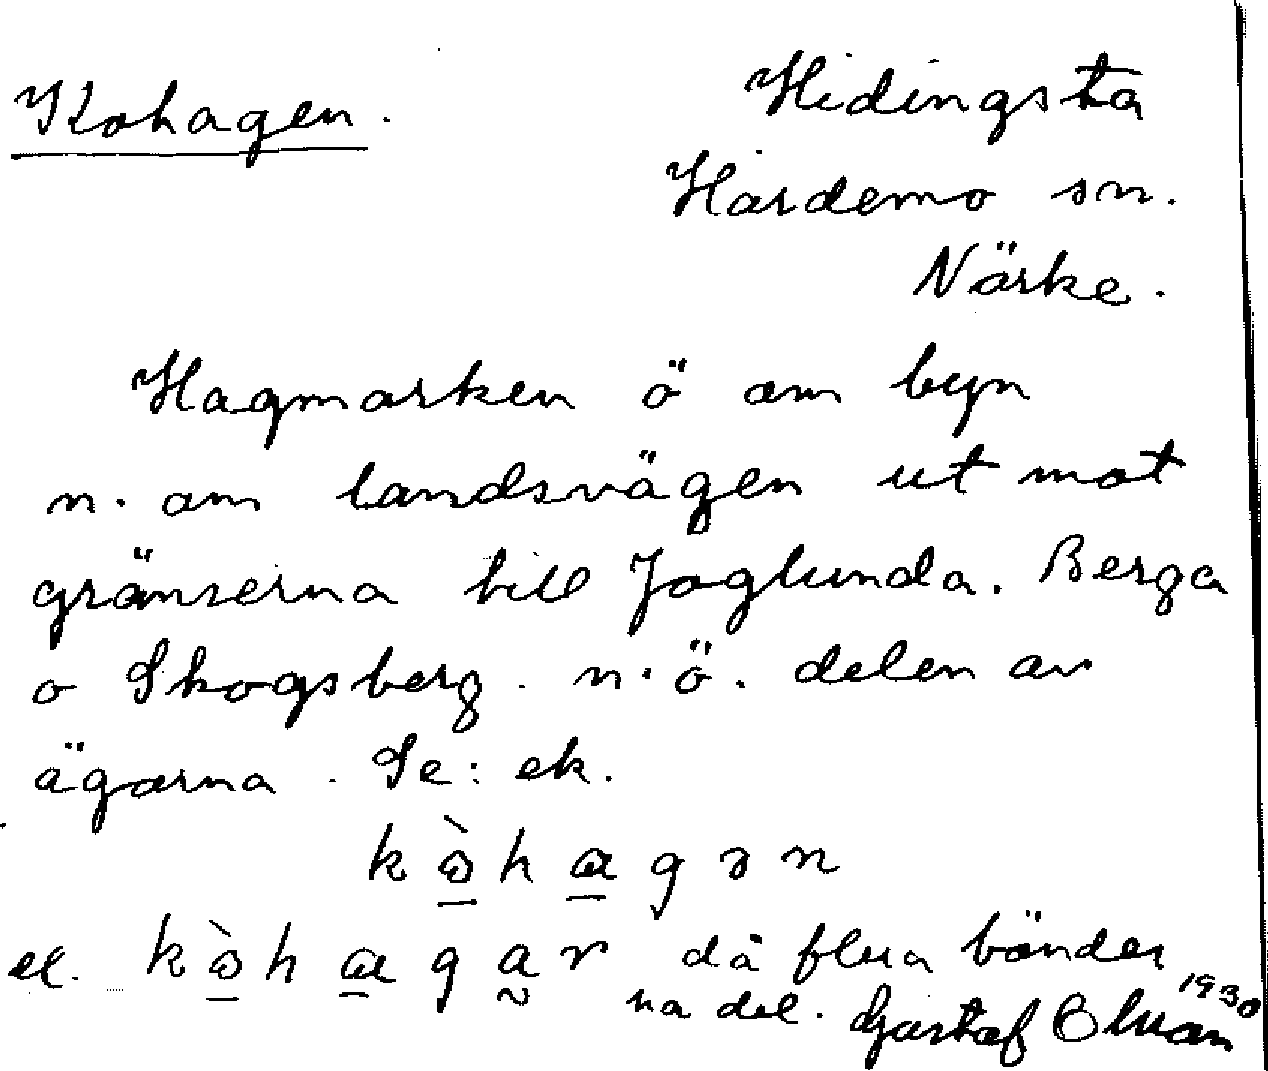 Kohagen.
Hidingsta
Hardemo sn.
Närke.
Hagmarken ö om byn
n. om landsvägen ut mot
gränserna till Joglunda. Berga
o Skogsberg. n.ö. delen av
ägorna. Se: ek.
kὼhagən
el. kὼhagar då flera bönder
ha del. Gustaf 1930